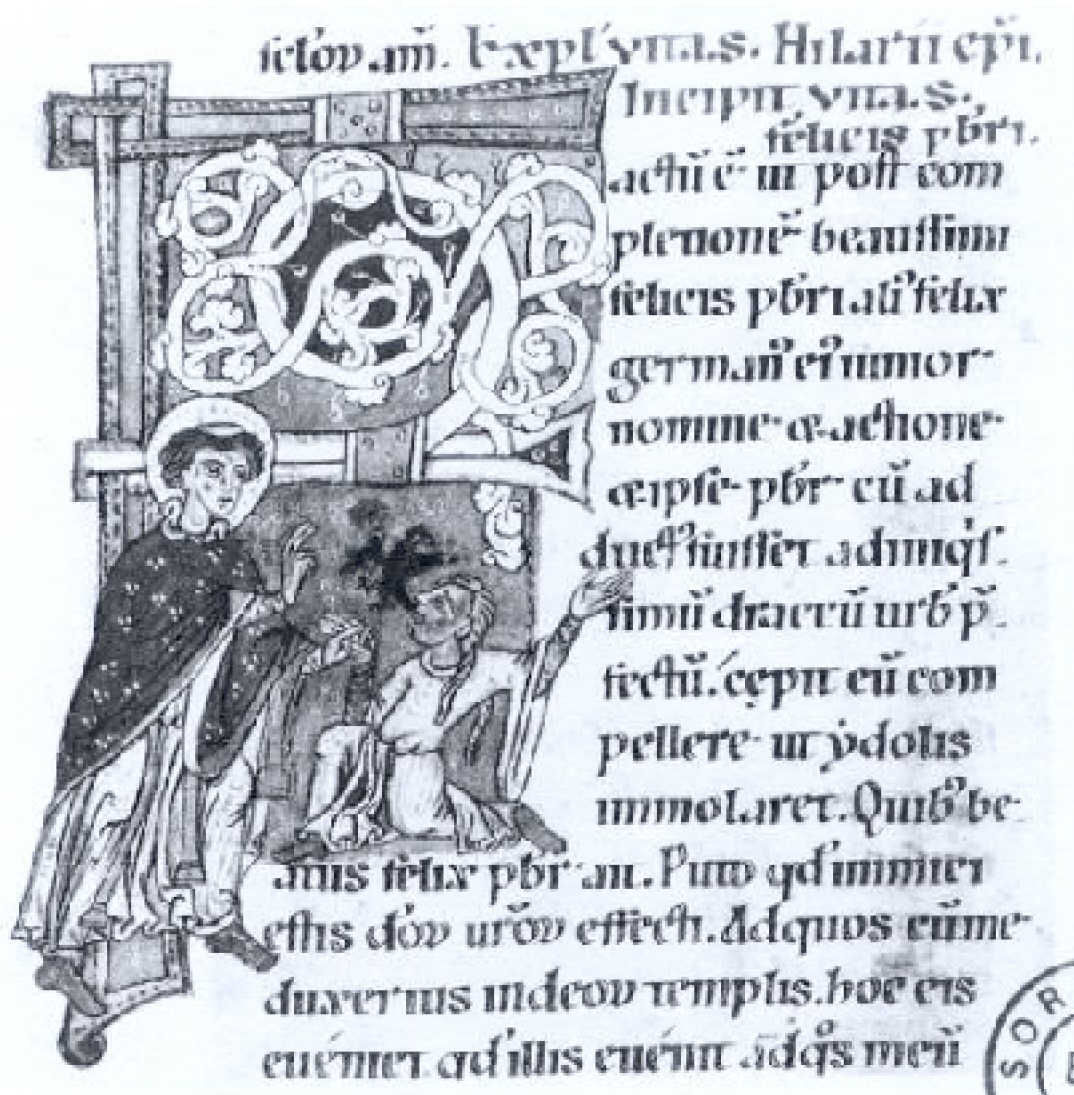 sclov am̄. Expl' vita. S. Hilarii ep̄i.
Incipit vita. S.
felicis pb̄ri.
Factū ē ut post com
pletionē beatissimi
felicis pb̄ri. ali' felix
german' ei' iunior
nomine & actione
& ipse pb̄r cū ad
duct' fuisset ad iniq̇s
simū dractū urb̄ p̄
fectū. cępit eū com
pellere ut ydolis
immolaret. Quib' be
atus felix pb̄r ait. Puto qd inimici
estis dōv urōv effecti. Ad quos cūme
duxeritis indeov templis. hoc eis
evéniet qd illis evénit ad q̊s meū
SOR